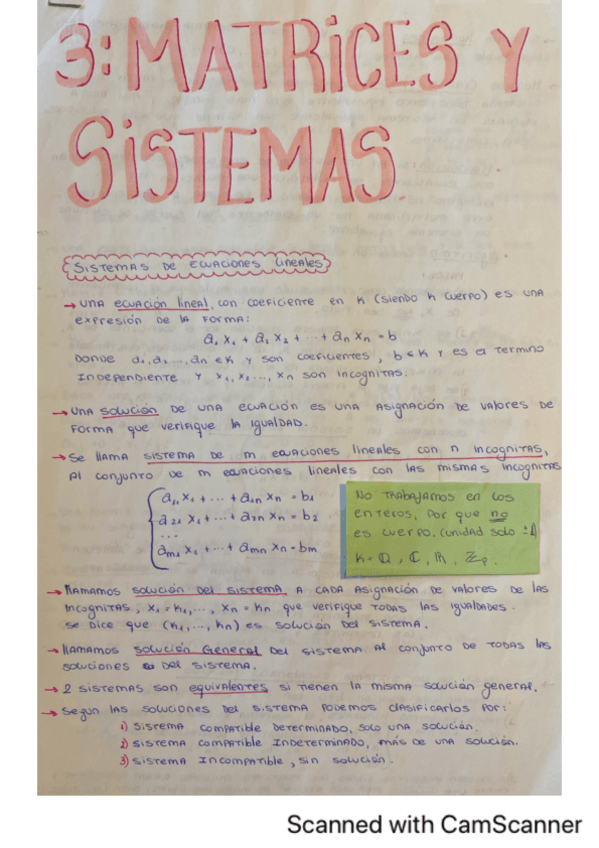 3: MATRICES Y
SISTEMAS.
SISTEMAS DE ECUACIONES LINEALES
→ UNA ECUACIÓN LINEAL, CON COEFICIENTE EN K (SIENDO K CUERPO) ES UNA
EXPRESIÓN DE LA FORMA:
a₁ x₁ + a₂ x₂ + ... + an xn = b
DONDE a₁, a₂ ..., an ∈ K Y SON COEFICIENTES, b ∈ K Y ES EL TERMINO
INDEPENDIENTE Y x₁, x₂ ..., xn SON INCOGNITAS.
→ UNA SOLUCIÓN DE UNA ECUACIÓN ES UNA ASIGNACIÓN DE VALORES DE
FORMA QUE VERIFIQUE LA IGUALDAD.
→ SE LLAMA SISTEMA DE m ECUACIONES LINEALES CON n INCOGNITAS,
AL CONJUNTO DE m ECUACIONES LINEALES CON LAS MISMAS INCOGNITAS
a₁₁ x₁ + ... + a₁n xn = b₁
a₂₁ x₁ + ... + a₂n xn = b₂
...
am₁ x₁ + ... + amn xn = bm
NO TRABAJAMOS EN LOS
ENTEROS, POR QUE NO
ES CUERPO. (UNIDAD SOLO ±1)
K = ℚ, ℂ, ℝ, ℤp.
→ LLAMAMOS SOLUCIÓN DEL SISTEMA A CADA ASIGNACIÓN DE VALORES DE LAS
INCOGNITAS, x₁ = k₁, ..., xn = kn QUE VERIFIQUE TODAS LAS IGUALDADES.
SE DICE QUE (k₁, ..., kn) ES SOLUCIÓN DEL SISTEMA.
→ LLAMAMOS SOLUCIÓN GENERAL DEL SISTEMA AL CONJUNTO DE TODAS LAS
SOLUCIONES DEL SISTEMA.
→ 2 SISTEMAS SON EQUIVALENTES SI TIENEN LA MISMA SOLUCIÓN GENERAL.
→ SEGUN LAS SOLUCIONES DEL SISTEMA PODEMOS CLASIFICARLOS POR:
1) SISTEMA COMPATIBLE DETERMINADO, SOLO UNA SOLUCIÓN.
2) SISTEMA COMPATIBLE INDETERMINADO, MÁS DE UNA SOLUCIÓN.
3) SISTEMA INCOMPATIBLE, SIN SOLUCIÓN.
Scanned with CamScanner